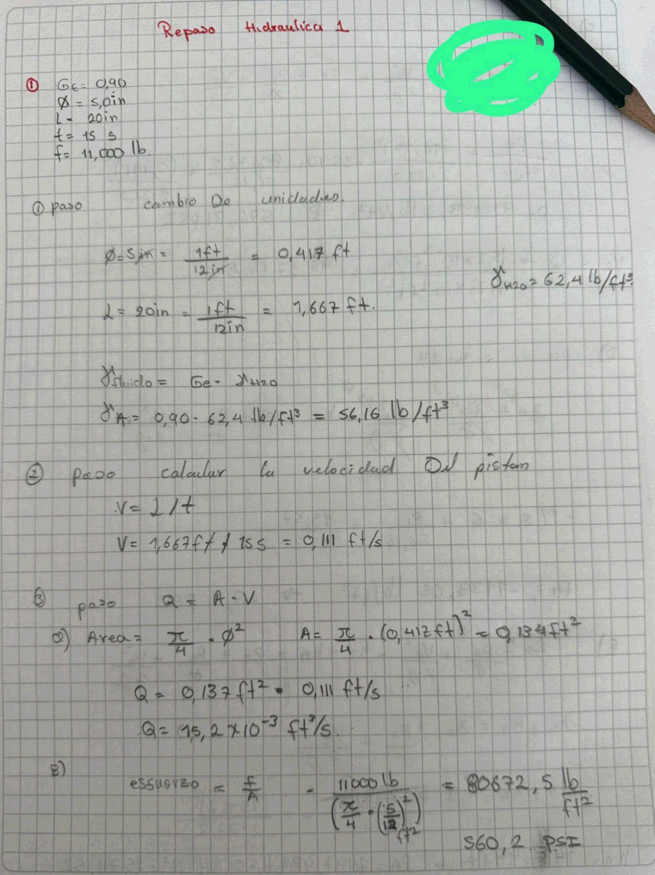 Repaso Hidraulica 1
① Ge = 0,90
Ø = 5,0in
L = 20in
t = 15 s
f = 11,000 lb.
① paso cambio De unidades.
Ø = 5in = 1ft / 12in = 0,417 ft
γH2O = 62,4 lb/ft³
L = 20in = 1ft / 12in = 1,667 ft.
γfluido = Ge · γH2O
γA = 0,90 · 62,4 lb/ft³ = 56,16 lb/ft³
② paso calcular la velocidad Del piston
V = L/t
V = 1,667ft / 15s = 0,111 ft/s
③ paso Q = A · V
a) Area = π/4 · Ø² A = π/4 · (0,417ft)² = 0,137ft²
Q = 0,137 ft² · 0,111 ft/s
Q = 15,2 x 10⁻³ ft³/s.
B) essuerzo = f/A = 11000 lb / (π/4 · (5/12)²) ft² = 80672,5 lb/ft²
560,2 PSI